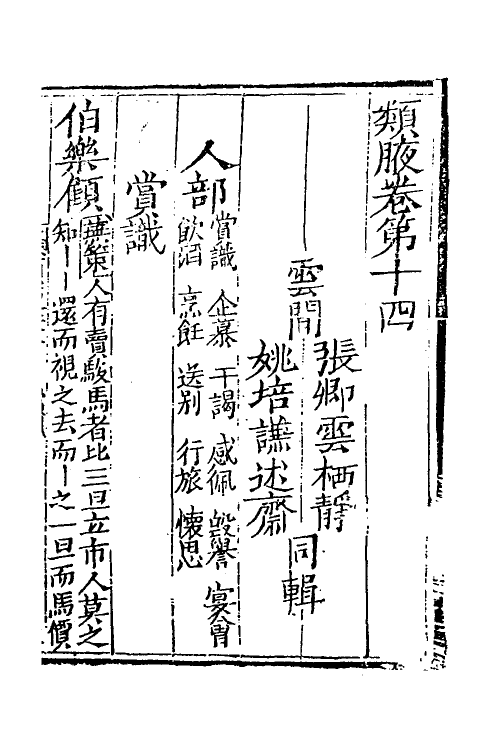 類腋卷第十四
雲間
張卿雲栖靜
姚培謙述齋
同輯
人部
賞識 企慕 干謁 感佩 毀譽 宴會
飲酒 烹飪 送别 行旅 懷思
賞識
伯樂顧
戰國策人有賣駿馬者比三旦立市人莫之
知丨丨還而視之去而丨之一旦而馬價